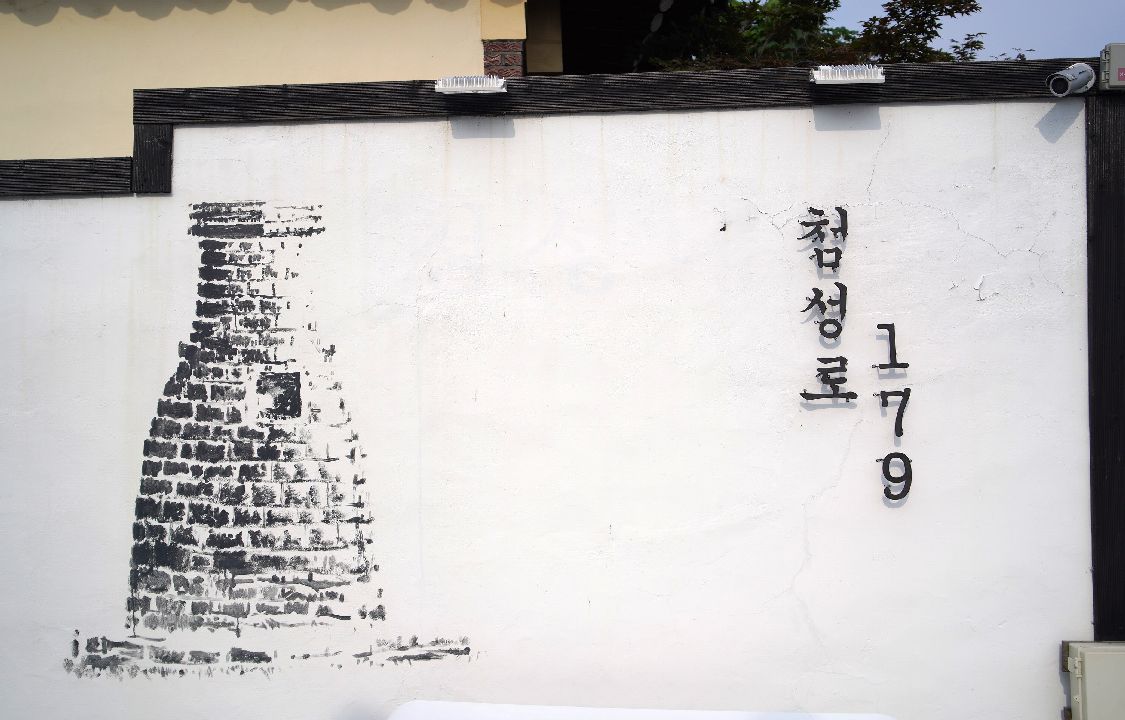 첨성로
179